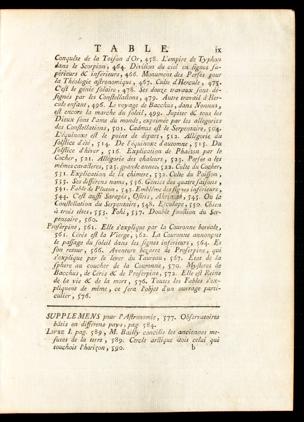 TABLE. ix
Conquête de la Toison d'Or, 458. L'empire de Typhon
dans le Scorpion, 464. Division du ciel en signes su-
périeurs & inférieurs, 466. Monument des Perses pour
la Théologie astronomique, 467. Culte d'Hercule, 478.
C'est le génie solaire, 478. Ses douze travaux sont dé-
signés par les Constellations, 479. Autre travail d'Her-
cule enfant, 496. Le voyage de Bacchus, dans Nonnus,
est encore la marche du soleil, 499. Jupiter & tous les
Dieux sont l'ame du monde, exprimée par les allégories
des Constellations, 501. Cadmus est le Serpentaire, 504.
L'équinoxe est le point de départ, 512. Allégorie du
solstice d'été, 514. De l'équinoxe d'automne, 515. Du
solstice d'hiver, 516. Explication de Phaéton par le
Cocher, 521. Allégorie des chaleurs, 523. Persée a les
mêmes caracteres, 525. grande année, 522. Culte du Cocher,
531. Explication de la chimere, 532. Culte du Poisson,
535. Ses différens noms, 536. Génies des quatre saisons,
541. Fable de Pluton, 543. Emblême des signes inférieurs,
544. C'est aussi Sérapis, Osiris, Ahriman, 545. Ou la
Constellation du Serpentaire, 548. Esculape, 550. Chien
à trois têtes, 553. Pohi, 557. Double fonction du Ser-
pentaire, 560.
Proserpine, 561. Elle s'explique par la Couronne boréale,
561. Cérès est la Vierge, 562. La Couronne annonçoit
le passage du soleil dans les signes inférieurs, 564. Et
son retour, 566. Aventure bizarre de Proserpine, qui
s'explique par le lever du Taureau, 567. Etat de la
sphere au coucher de la Couronne, 570. Mysteres de
Bacchus, de Cérès & de Proserpine, 572. Elle est Reine
de la vie & de la mort, 576. Toutes les Fables s'ex-
pliquent de même, ce sera l'objet d'un ouvrage parti-
culier, 576.
SUPPLEMENS pour l'Astronomie, 577. Observatoires
bâtis en différens pays, pag. 584.
LIVRE I. pag. 589, M. Bailly concilie les anciennes me-
sures de la terre, 589. Cercle arctique étoit celui qui
touchoit l'horizon, 590.
b